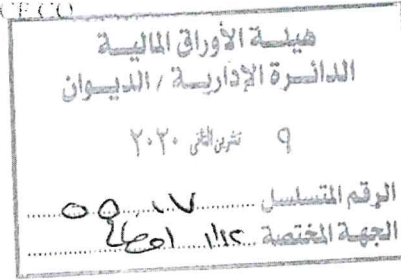 CECO
هيئة الأوراق المالية
الدائرة الإدارية / الديوان
٩ تشرين الثاني ٢٠٢٠
الرقم المتسلسل
الجهة المختصة